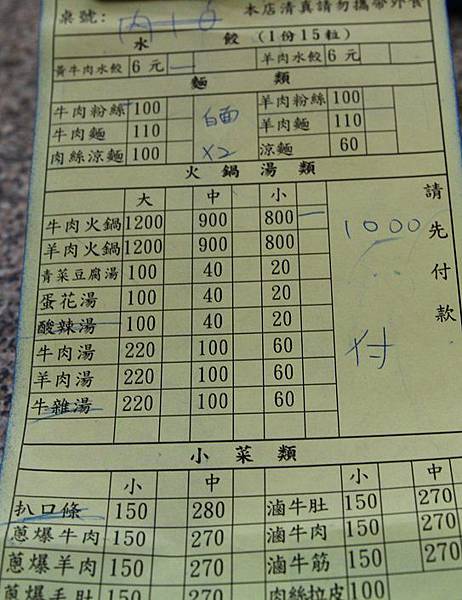 桌號: 內10 本店清真請勿攜帶外食
水 餃 (1份15粒)
黃牛肉水餃 6元 一 羊肉水餃 6元
麵 類
牛肉粉絲 100 羊肉粉絲 100
牛肉麵 110 白面 羊肉麵 110
肉絲涼麵 100 X2 涼麵 60
火鍋湯類
大 中 小 請先付款
牛肉火鍋 1200 900 800 一 1000
羊肉火鍋 1200 900 800
青菜豆腐湯 100 40 20
蛋花湯 100 40 20
酸辣湯 100 40 20
牛肉湯 220 100 60 付
羊肉湯 220 100 60
牛雜湯 220 100 60
小菜類
小 中 小 中
扒口條 150 280 滷牛肚 150 270
蔥爆牛肉 150 270 滷牛肉 150 270
蔥爆羊肉 150 270 滷牛筋 150 270
蔥爆毛肚 150 270 肉絲拉皮 100